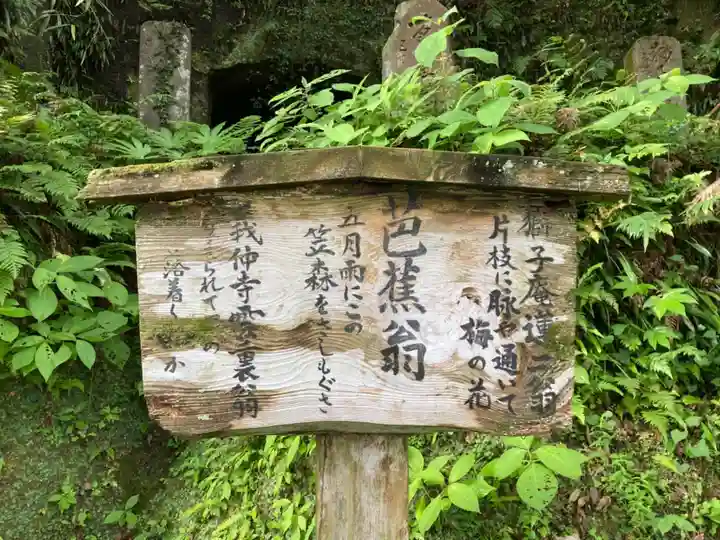 獅子庵蓮二翁
片枝に脉や通いて
梅の花
芭蕉翁
五月雨にこの
笠森をさしもぐさ
我仲寺雲裏翁
られての
浴着く